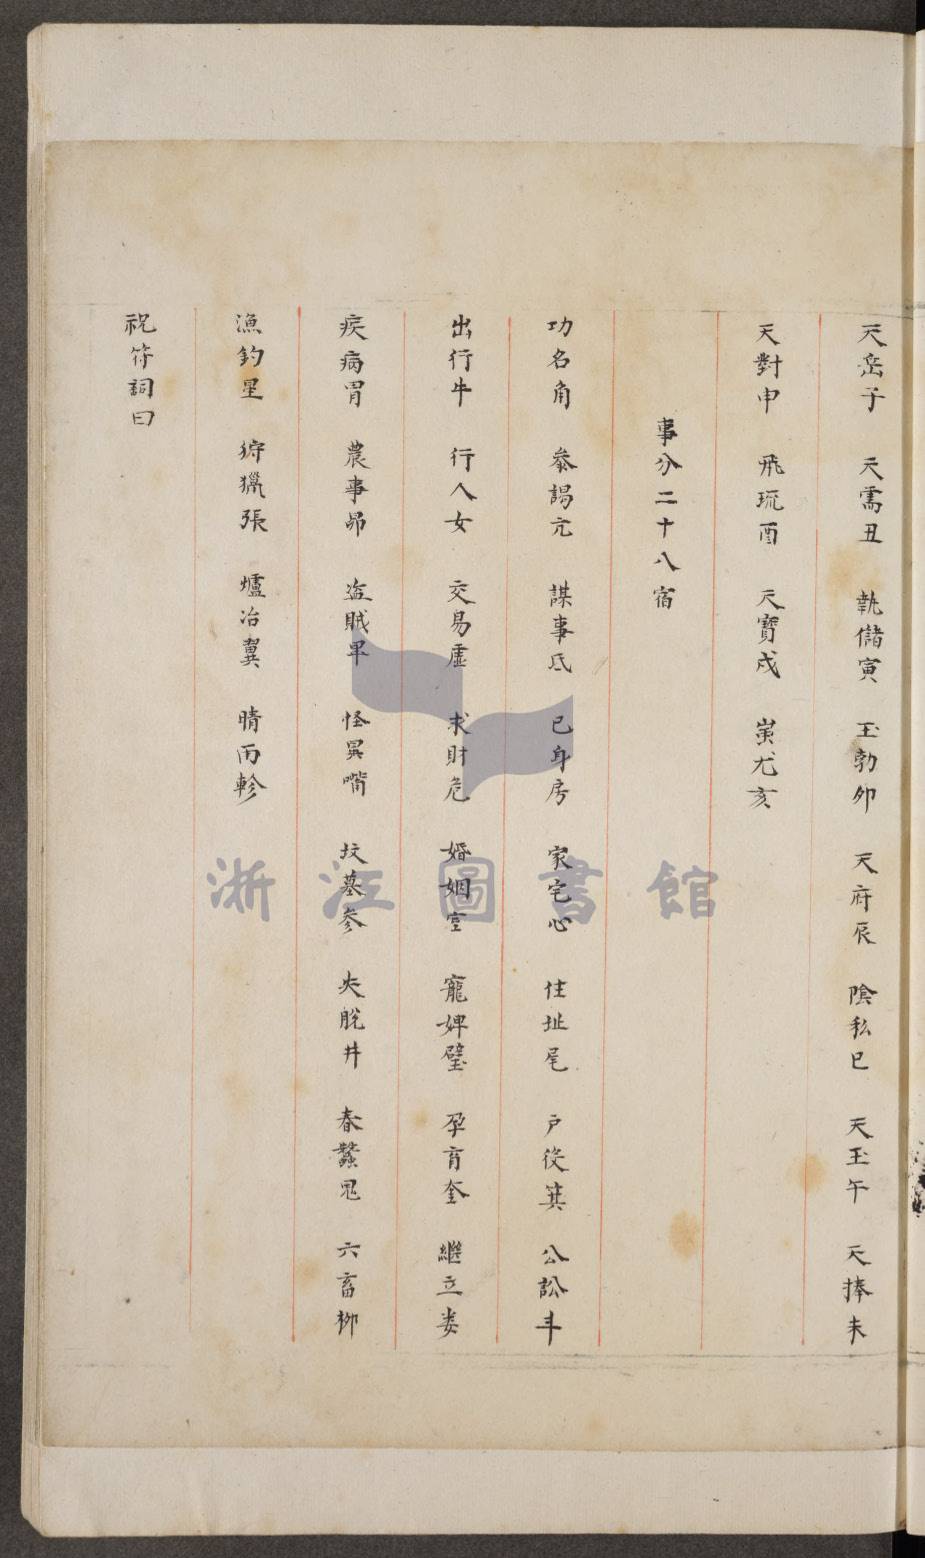 天岳子 天䨲丑 執儲寅 玉勃夘 天府辰 陰私巳 天玉午 天捧未
天對申 飛琉酉 天寳戍 蚩尤亥
事分二十八宿
功名角 叅謁亢 謀事氐 已身房 家宅心 住址尾 户役箕 公訟斗
出行牛 行人女 交易虛 求財危 婚姻室 寵婢壁 孕育奎 繼立婁
疾病胃 農事昴 盗賊畢 怪異嘴 坟墓参 失脫井 春蠶鬼 六畜柳
漁釣星 狩獵張 爐冶翼 晴雨軫
祝符詞曰
浙江圖書館